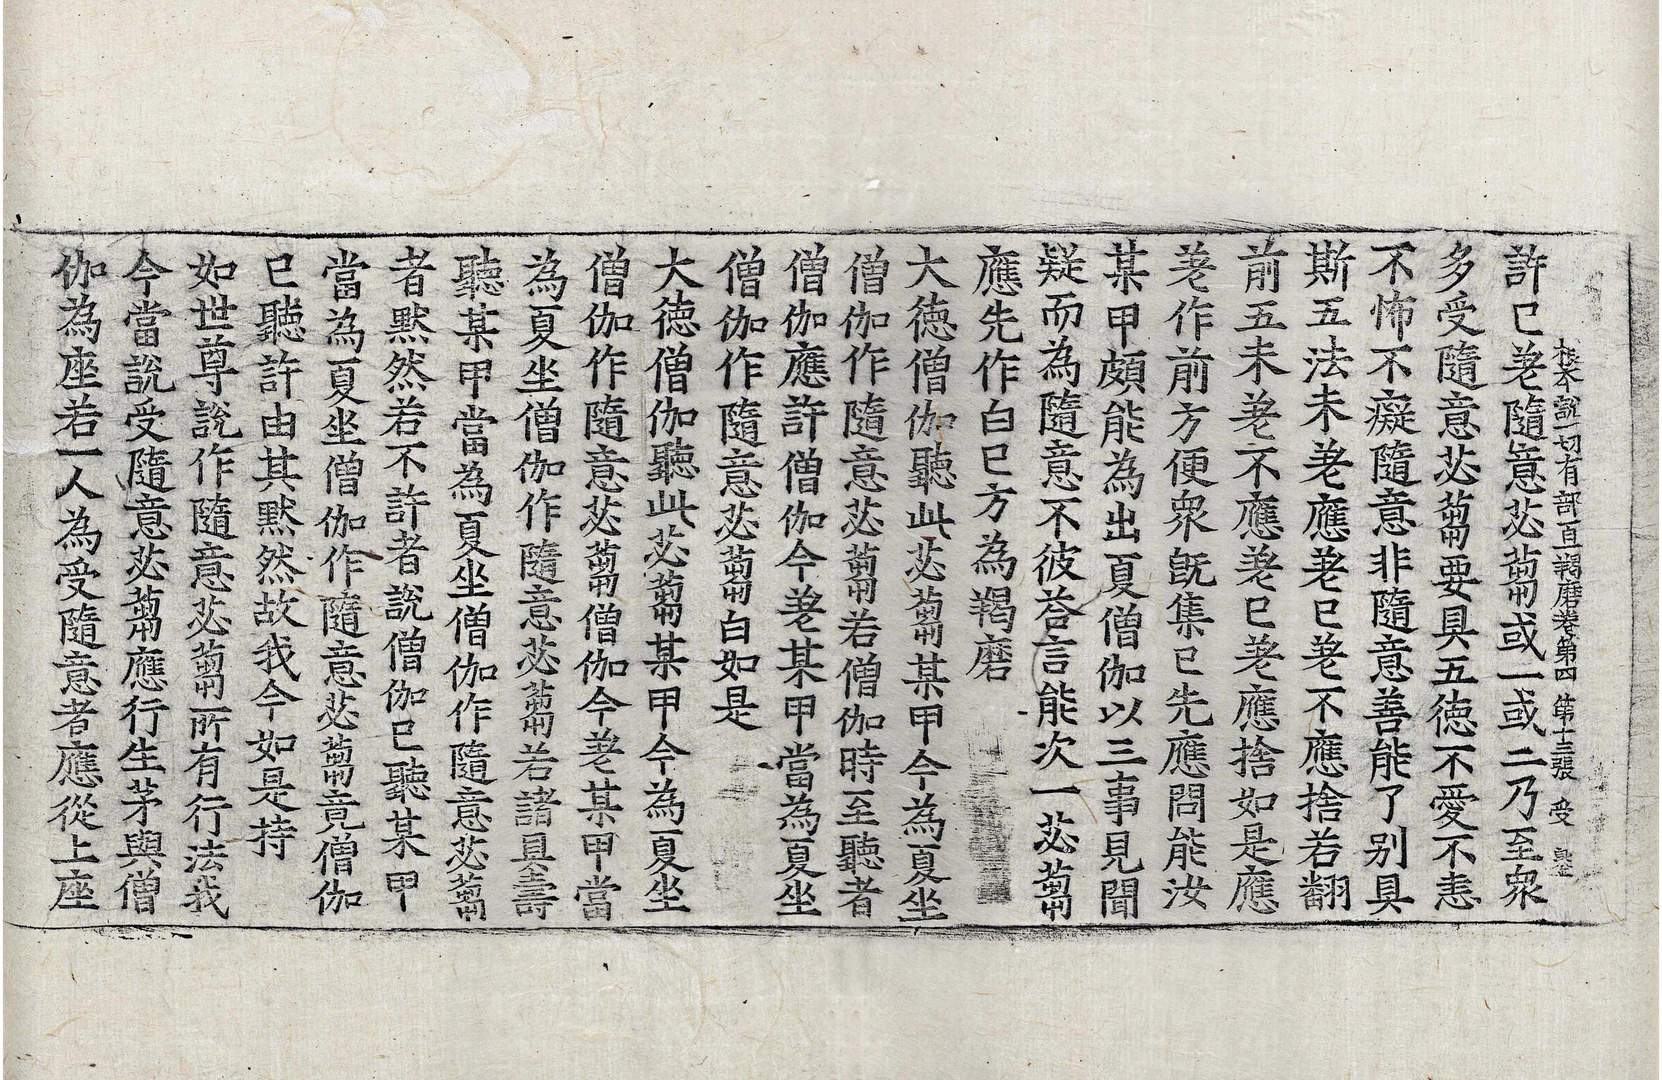 根本說一切有部百一羯磨卷第四　第十三張　受
許已差隨意苾蒭或一或二乃至衆
多受隨意苾蒭要具五德不愛不恚
不怖不癡隨意非隨意善能了別具
斯五法未差應差已差不應捨若翻
前五未差不應差已差應捨如是應
差作前方便衆旣集已先應問能汝
某甲頗能為出夏僧伽以三事見聞
疑而為隨意不彼荅言能次一苾蒭
應先作白已方為羯磨
大德僧伽聽此苾蒭某甲今為夏坐
僧伽作隨意苾蒭若僧伽時至聽者
僧伽應許僧伽今差某甲當為夏坐
僧伽作隨意苾蒭白如是
大德僧伽聽此苾蒭某甲今為夏坐
僧伽作隨意苾蒭僧伽今差某甲當
為夏坐僧伽作隨意苾蒭若諸具壽
聽某甲當為夏坐僧伽作隨意苾蒭
者默然若不許者說僧伽已聽某甲
當為夏坐僧伽作隨意苾蒭竟僧伽
已聽許由其默然故我今如是持
如世尊說作隨意苾蒭所有行法我
今當說受隨意苾蒭應行生茅與僧
伽為座若一人為受隨意者應從上座